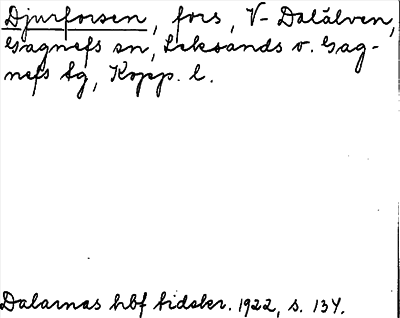 Djurforsen, fors, V-Dalälven,
Gagnefs sn, Leksands o. Gag-
nefs tg, Kopp. l.
Dalarnas hbf tidskr. 1922, s. 134.